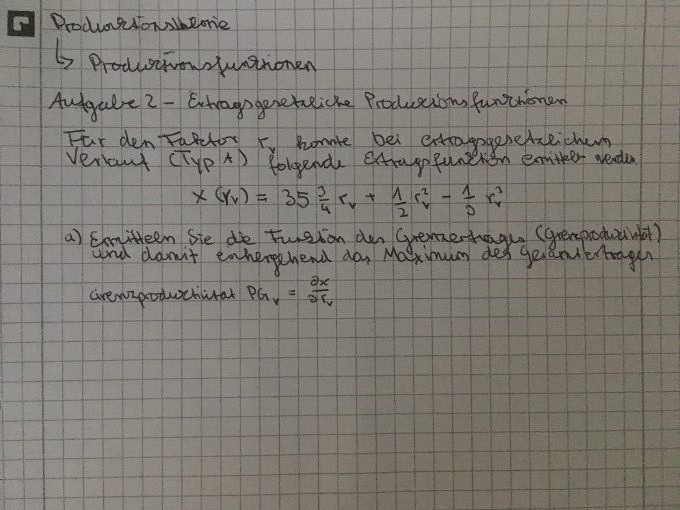 Produktionstheorie
↳ Produktionsfunktionen
Aufgabe 2 - Ertragsgesetzliche Produktionsfunktionen
Für den Faktor r_v konnte bei ertragsgesetzlichem
Verlauf (Typ A) folgende Ertragsfunktion ermittelt werden
x(r_v) = 35 3/4 r_v + 1/2 r_v² - 1/3 r_v³
a) Ermitteln Sie die Funktion des Grenzertrages (Grenzproduktivität)
und damit einhergehend das Maximum des Gesamtertrages
Grenzproduktivität PG_v = ∂x/∂r_v